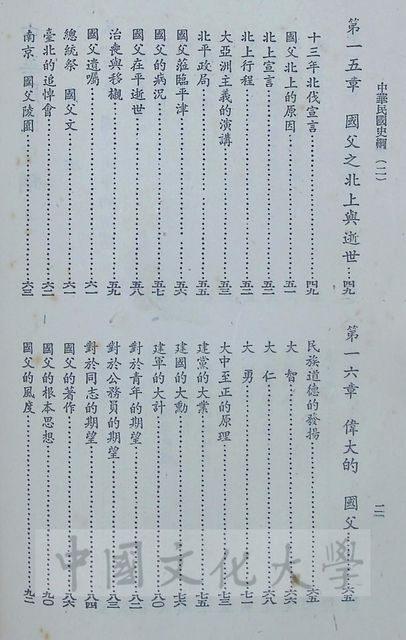 中華民國史綱(二)
第一五章 國父之北上與逝世……四九
十三年北伐宣言……四九
國父北上的原因……五一
北上宣言……五一
北上行程……五二
大亞洲主義的演講……五三
北平政局……五五
國父蒞臨平津……五六
國父的病況……五七
國父在平逝世……五八
治喪與移櫬……五九
國父遺囑……六一
總統祭 國父文……六一
臺北的追悼會……六二
南京 國父陵園……六三
二
第一六章 偉大的 國父……六五
民族道德的發揚……六五
大 智……六六
大 仁……六八
大 勇……七一
大中至正的原理……七三
建黨的大業……七五
建國的大勳……七六
建軍的大計……八〇
對於青年的期望……八二
對於公務員的期望……八三
對於同志的期望……八四
國父的著作……八六
國父的根本思想……九〇
國父的風度……九二
中國文化大學